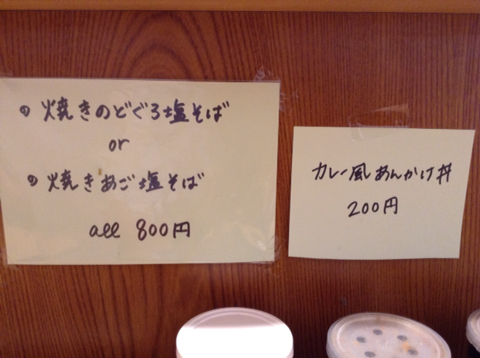 • 焼きのどぐろ塩そば
or
• 焼きあご塩そば
all 800円
カレー風あんかけ丼
200円